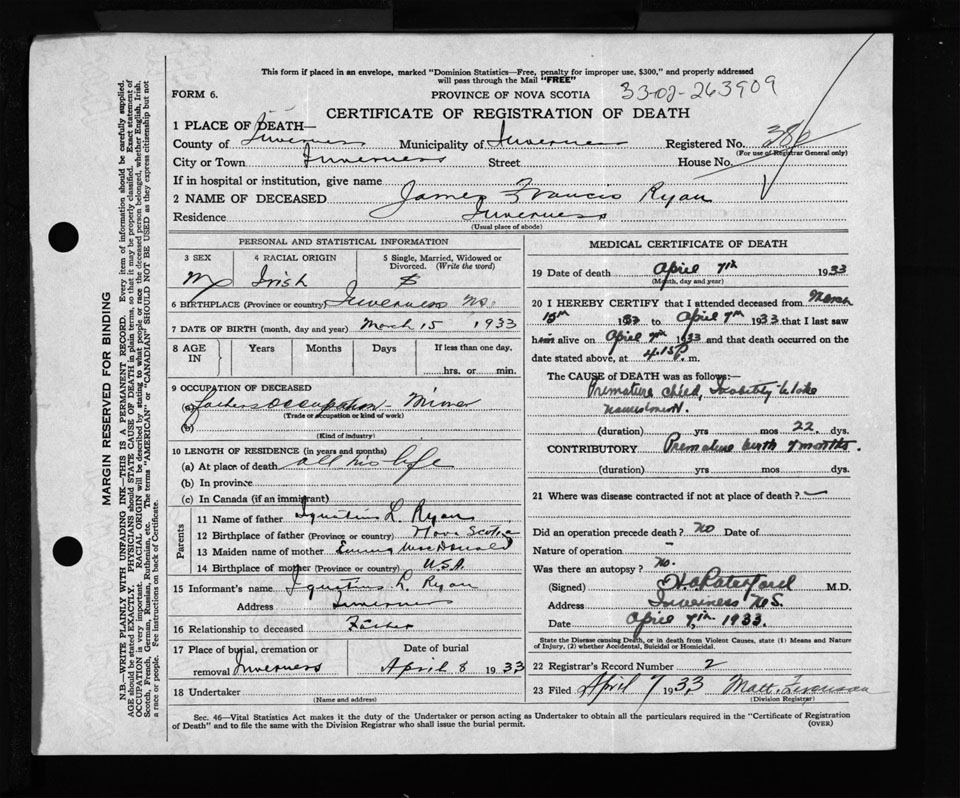 This form if placed in an envelope, marked "Dominion Statistics—Free, penalty for improper use, $300," and properly addressed
will pass through the Mail "FREE"
FORM 6.
PROVINCE OF NOVA SCOTIA
33-02-263909
CERTIFICATE OF REGISTRATION OF DEATH
1 PLACE OF DEATH—
County of Inverness Municipality of Inverness Registered No. 386
(For use of Registrar General only)
City or Town Inverness Street House No.
If in hospital or institution, give name
2 NAME OF DECEASED James Francis Ryan
Residence Inverness
(Usual place of abode)
PERSONAL AND STATISTICAL INFORMATION
3 SEX 4 RACIAL ORIGIN 5 Single, Married, Widowed or Divorced. (Write the word)
M Irish S
6 BIRTHPLACE (Province or country) Inverness N.S.
7 DATE OF BIRTH (month, day and year) March 15 1933
8 AGE IN Years Months Days If less than one day.
hrs. or min.
9 OCCUPATION OF DECEASED
(a) Fathers Occupation Miner
(Trade or occupation or kind of work)
(b)
(Kind of industry)
10 LENGTH OF RESIDENCE (in years and months)
(a) At place of death all his life
(b) In province
(c) In Canada (if an immigrant)
Parents
11 Name of father Ignatius L. Ryan
12 Birthplace of father (Province or country) Nova Scotia
13 Maiden name of mother Emma MacDonald
14 Birthplace of mother (Province or country) U.S.A.
15 Informant's name Ignatius L. Ryan
Address Inverness
16 Relationship to deceased Father
17 Place of burial, cremation or Date of burial
removal Inverness April 8 1933
18 Undertaker
(Name and address)
MEDICAL CERTIFICATE OF DEATH
19 Date of death April 7th 1933
(Month, day and year)
20 I HEREBY CERTIFY that I attended deceased from March
15th 1933 to April 7th 1933 that I last saw
him alive on April 7th 1933 and that death occurred on the
date stated above, at 4.15 P. m.
The CAUSE of DEATH was as follows:—
Premature child, Inability to take
nourishment.
(duration) yrs mos 22 dys.
CONTRIBUTORY Premature birth 7 months.
(duration) yrs. mos. dys.
21 Where was disease contracted if not at place of death? —
Did an operation precede death? No Date of
Nature of operation —
Was there an autopsy? No.
(Signed) M.D.
Address Inverness N.S.
Date April 7th, 1933.
State the Disease causing Death, or in death from Violent Causes, state (1) Means and Nature
of Injury, (2) whether Accidental, Suicidal or Homicidal.
22 Registrar's Record Number 2
23 Filed April 7 1933 Matt. Ferguson
(Division Registrar)
Sec. 46—Vital Statistics Act makes it the duty of the Undertaker or person acting as Undertaker to obtain all the particulars required in the "Certificate of Registration
of Death" and to file the same with the Division Registrar who shall issue the burial permit. (OVER)
MARGIN RESERVED FOR BINDING
N.B.—WRITE PLAINLY WITH UNFADING INK—THIS IS A PERMANENT RECORD. Every item of information should be carefully supplied.
AGE should be stated EXACTLY. PHYSICIANS should STATE CAUSE OF DEATH in plain terms, so that it may be properly classified. Exact statement of
OCCUPATION is very important. RACIAL ORIGIN will be described by stating to what people or race the deceased person belonged, whether English, Irish,
Scotch, French, German, Russian, Ruthenian, etc. The terms "AMERICAN" or "CANADIAN" SHOULD NOT BE USED as they express citizenship but not
a race or people. Fee instructions on back of Certificate.